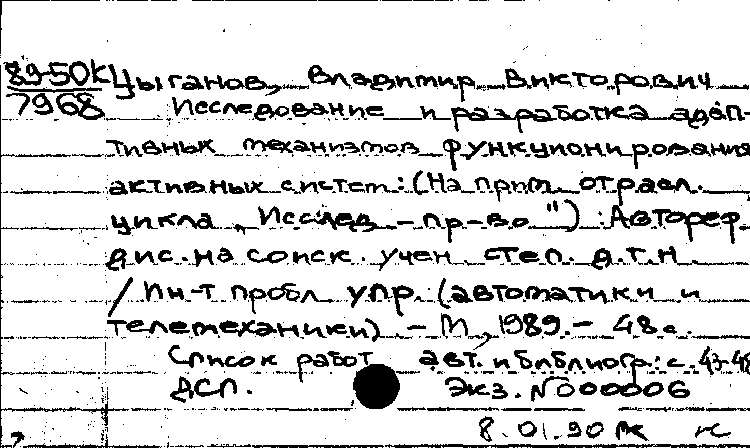 89-50К Цыганов, Владимир Викторович
7968 Исследование и разработка адап-
тивных механизмов функционирования
активных систем: (На прим. отрасл.
цикла „Исслед. - пр-во") : Автореф.
дис. на соиск. учен. степ. д.т.н.
/ Ин-т пробл. упр. (автоматики и
телемеханики). - М., 1989. - 48 с.
Список работ авт. и библиогр.: с. 43-48
ДСП. Экз. N 000006
8.01.90